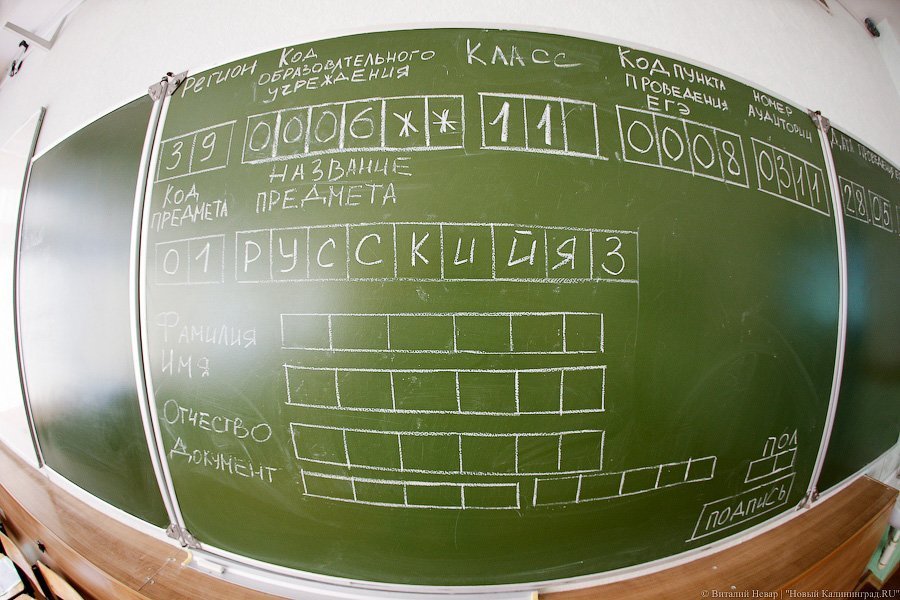 Регион
Код
образовтельного
учреждения
Класс
Код пункта
проведения
ЕГЭ
номер
аудитории
39
0006**
11
0008
0311
28 05
Код
предмета
Название
предмета
01
РУССКИЙЯЗ
Фамилия
Имя
Отчество
Документ
Пол
подпись
© Виталий Невар | "Новый Калининград.RU"